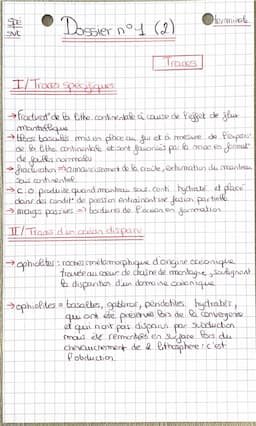 spé
SVT
Dossier n°1 (2)
terminale
Traces
I/ Traces spécifiques
→ fracturat° de la lithe. continentale à cause de l'effet de flux
mantellique
→ blocs basculés mis en place au fur et à mesure de l'expans°
de la lithe continentale et sont favorisés par la mise en format°
de failles normales
→ fracturation => amincissement de la croûte, exhumation du manteau
sous continental
→ C.O produite quand manteau sous. conti hydraté et placé
dans des condit° de pression entrainant une fusion partielle
→ marges passives => bordures de l'océan en formation
II/ Traces d'un océan disparu
→ ophiolites : roches métamorphique d'origine océanique
trouvée au coeur de chaîne de montagne, soulignant
la disparition d'un domaine océanique
→ ophiolites = basaltes, gabbros, péridotites hydratés,
qui ont été préservé lors de la convergence
et qui n'ont pas disparus par subduction
mais été remontées en surface lors du
chevauchement de la lithosphère : c'est
l'obduction